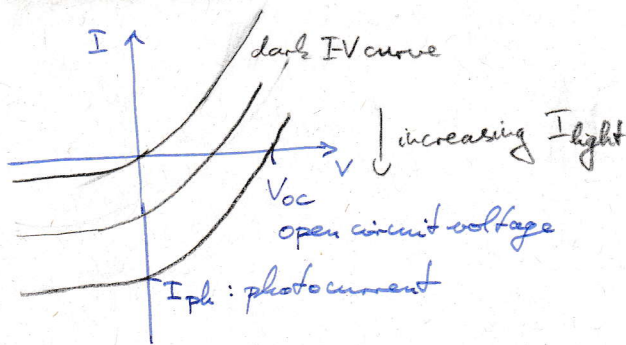 I
dark I-V curve
increasing I light
V
Voc
open circuit voltage
Iph : photocurrent